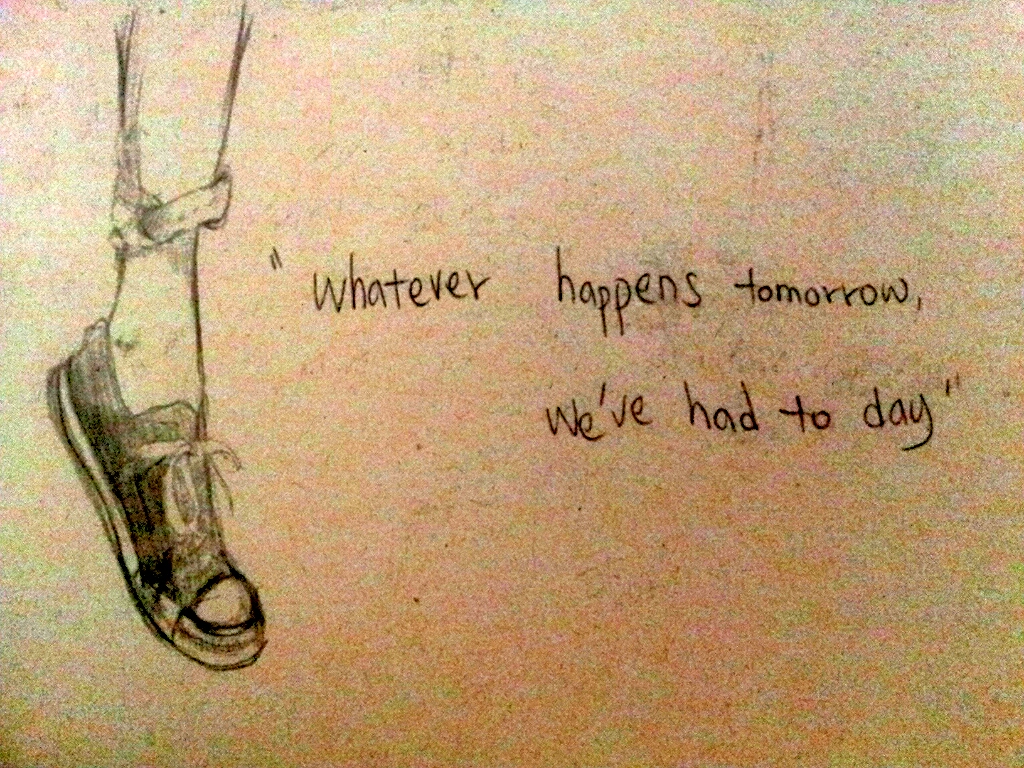 "Whatever happens tomorrow,
We've had to day"